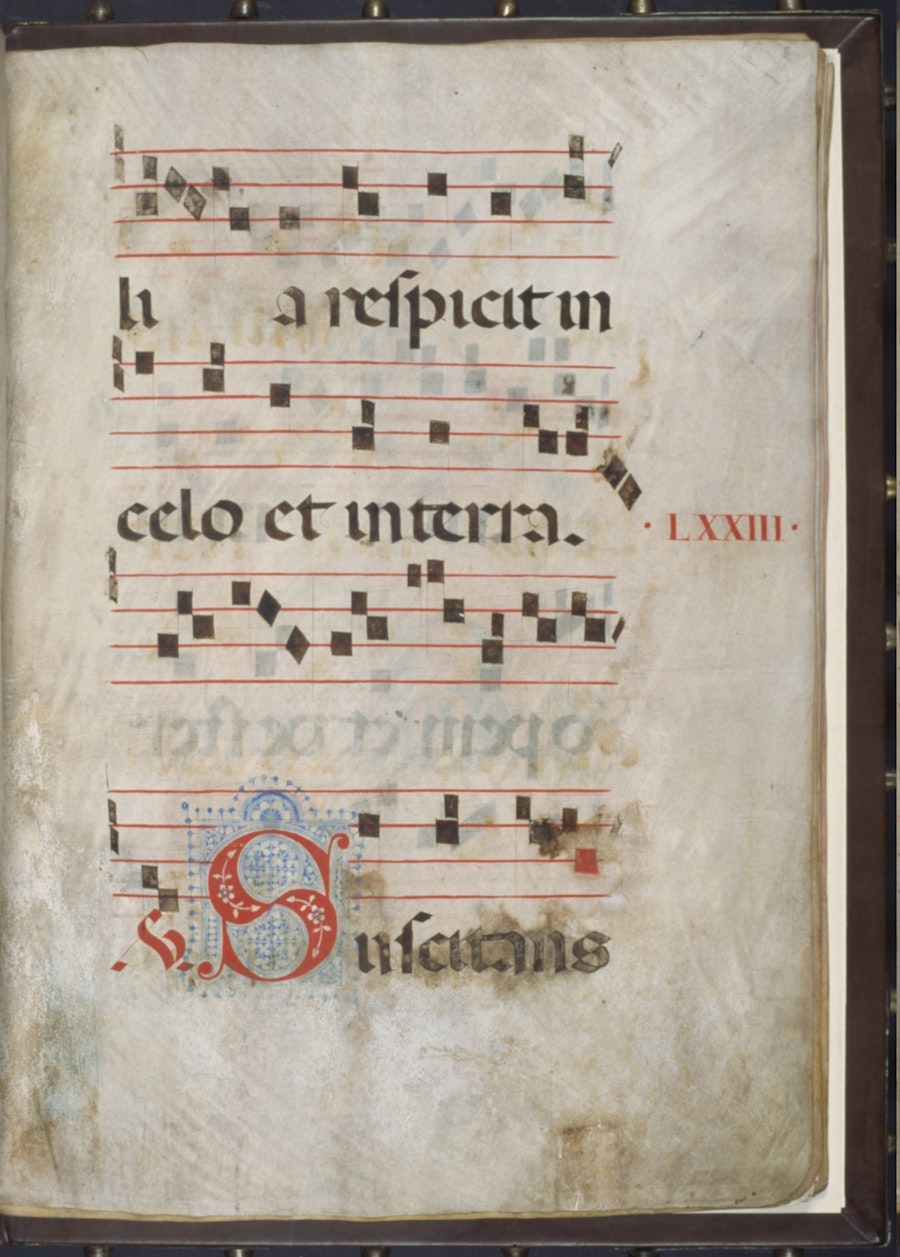 li a respicit in
celo et in terra.
· LXXIII ·
℣. Suscitans